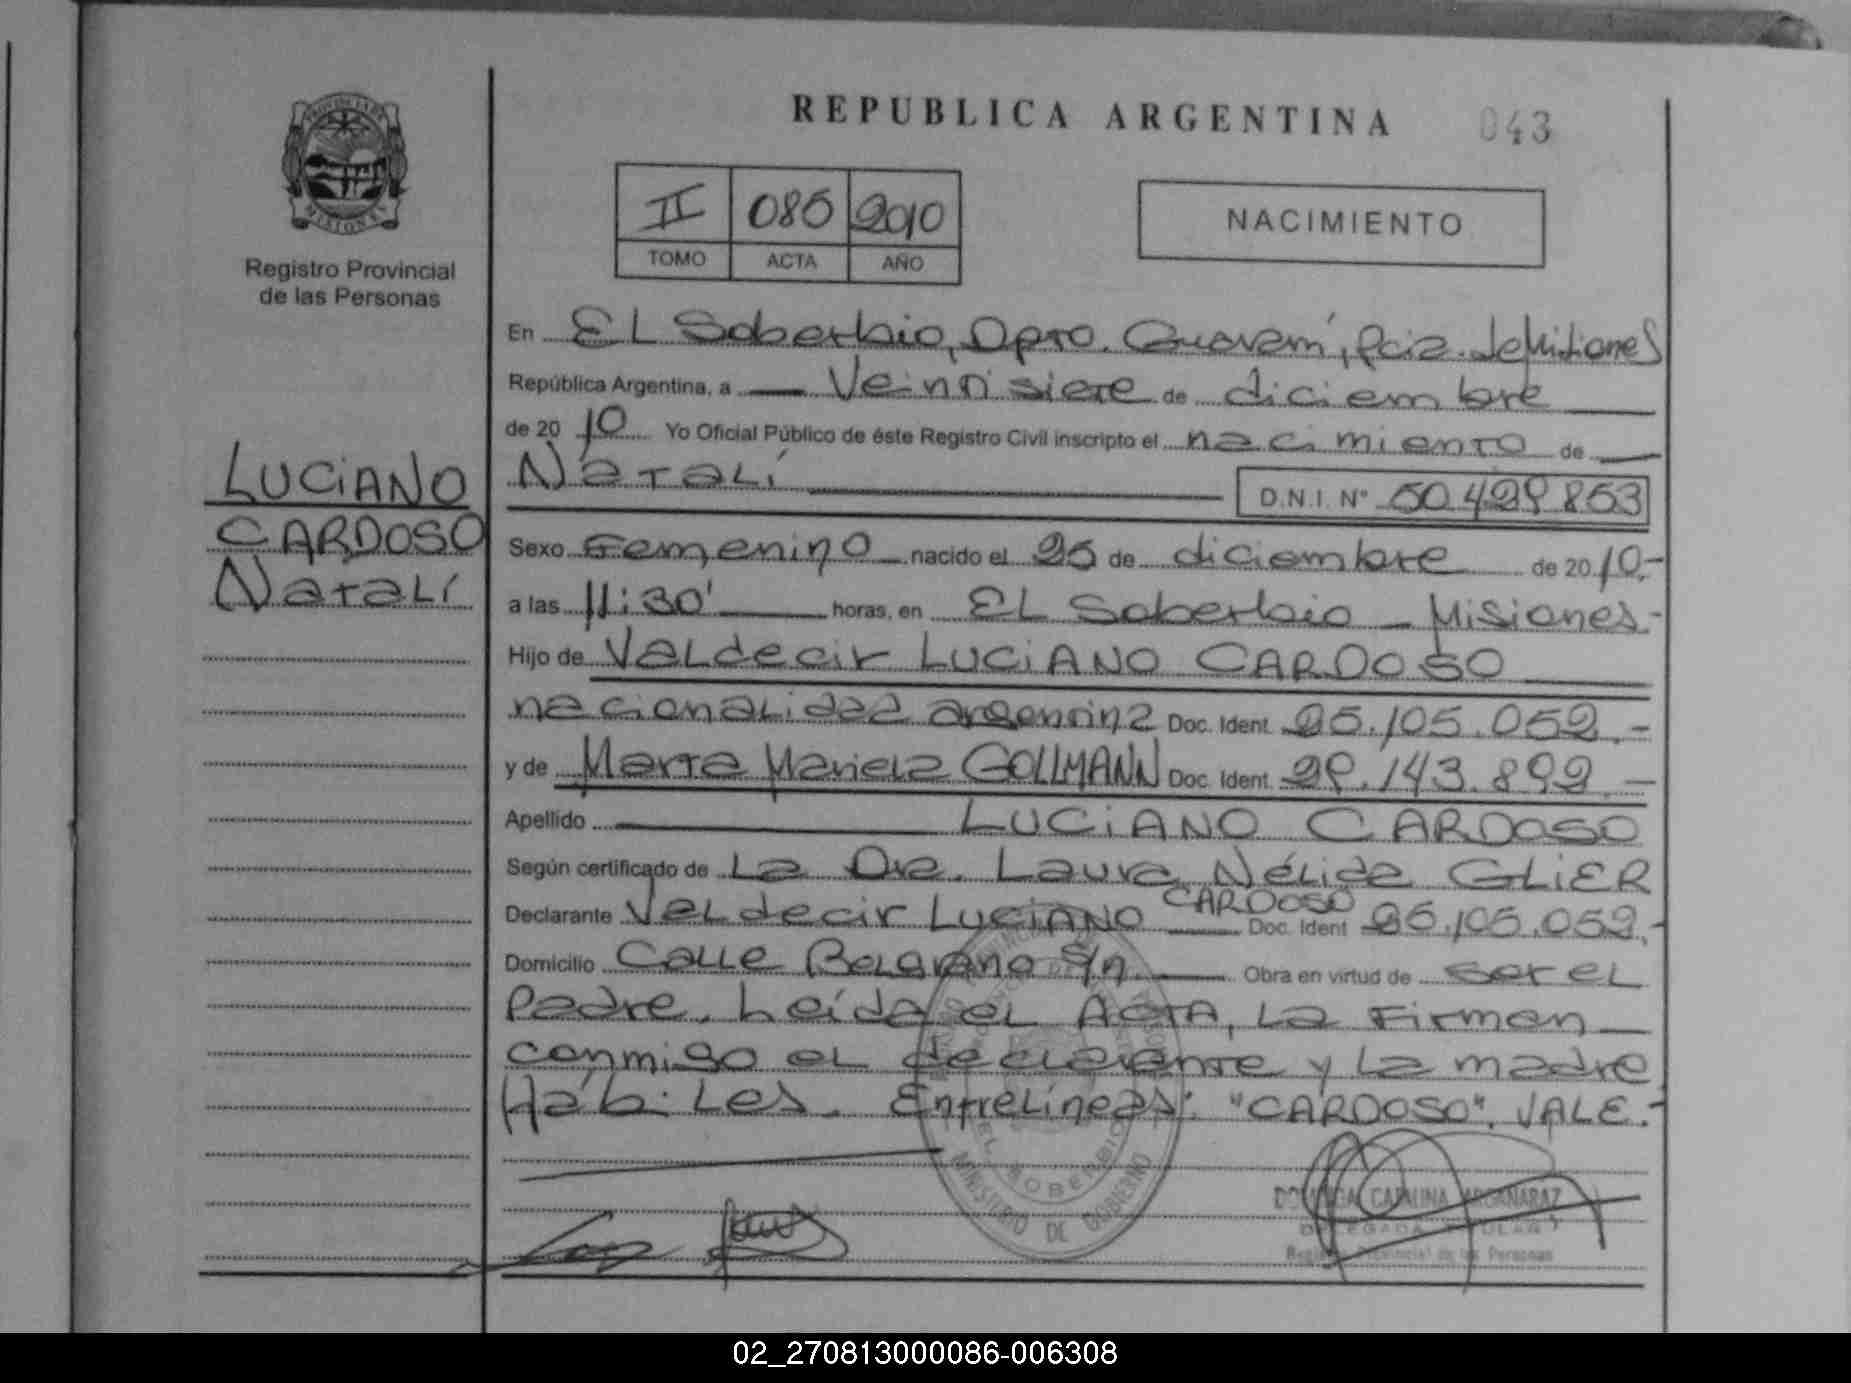 PROVINCIA DE
MISIONES
Registro Provincial
de las Personas
LUCIANO
CARDOSO
Natalí
REPUBLICA ARGENTINA 043
II 085 2010
TOMO ACTA AÑO
NACIMIENTO
En EL Soberbio, Dpto. Guaraní, Pcia. de Misiones
República Argentina, a Veintisiete de diciembre
de 2010 Yo Oficial Público de éste Registro Civil inscripto el nacimiento de
Natalí D.N.I. Nº 50.429.853
Sexo Femenino nacido el 25 de diciembre de 2010.-
a las 11:30' horas, en EL Soberbio - Misiones.-
Hijo de Valdecir LUCIANO CARDOSO
nacionalidad argentina Doc. Ident. 25.105.052.-
y de Marta Mariela GOLLMANN Doc. Ident. 29.143.892.-
Apellido LUCIANO CARDOSO
Según certificado de La Dra. Laura Nélida GLIER
Declarante Valdecir LUCIANO CARDOSO Doc. Ident 25.105.052.-
Domicilio Calle Belgrano S/n. Obra en virtud de ser el
Padre. Leída el ACTA, La Firman
conmigo el declarante y La madre
Hábiles. Entrelíneas: "CARDOSO". VALE.-
EL SOBERBIO
MINISTERIO DE GOBIERNO
CATALINA ARGAÑARAZ
DELEGADA TITULAR
Registro Provincial de las Personas
02_270813000086-006308